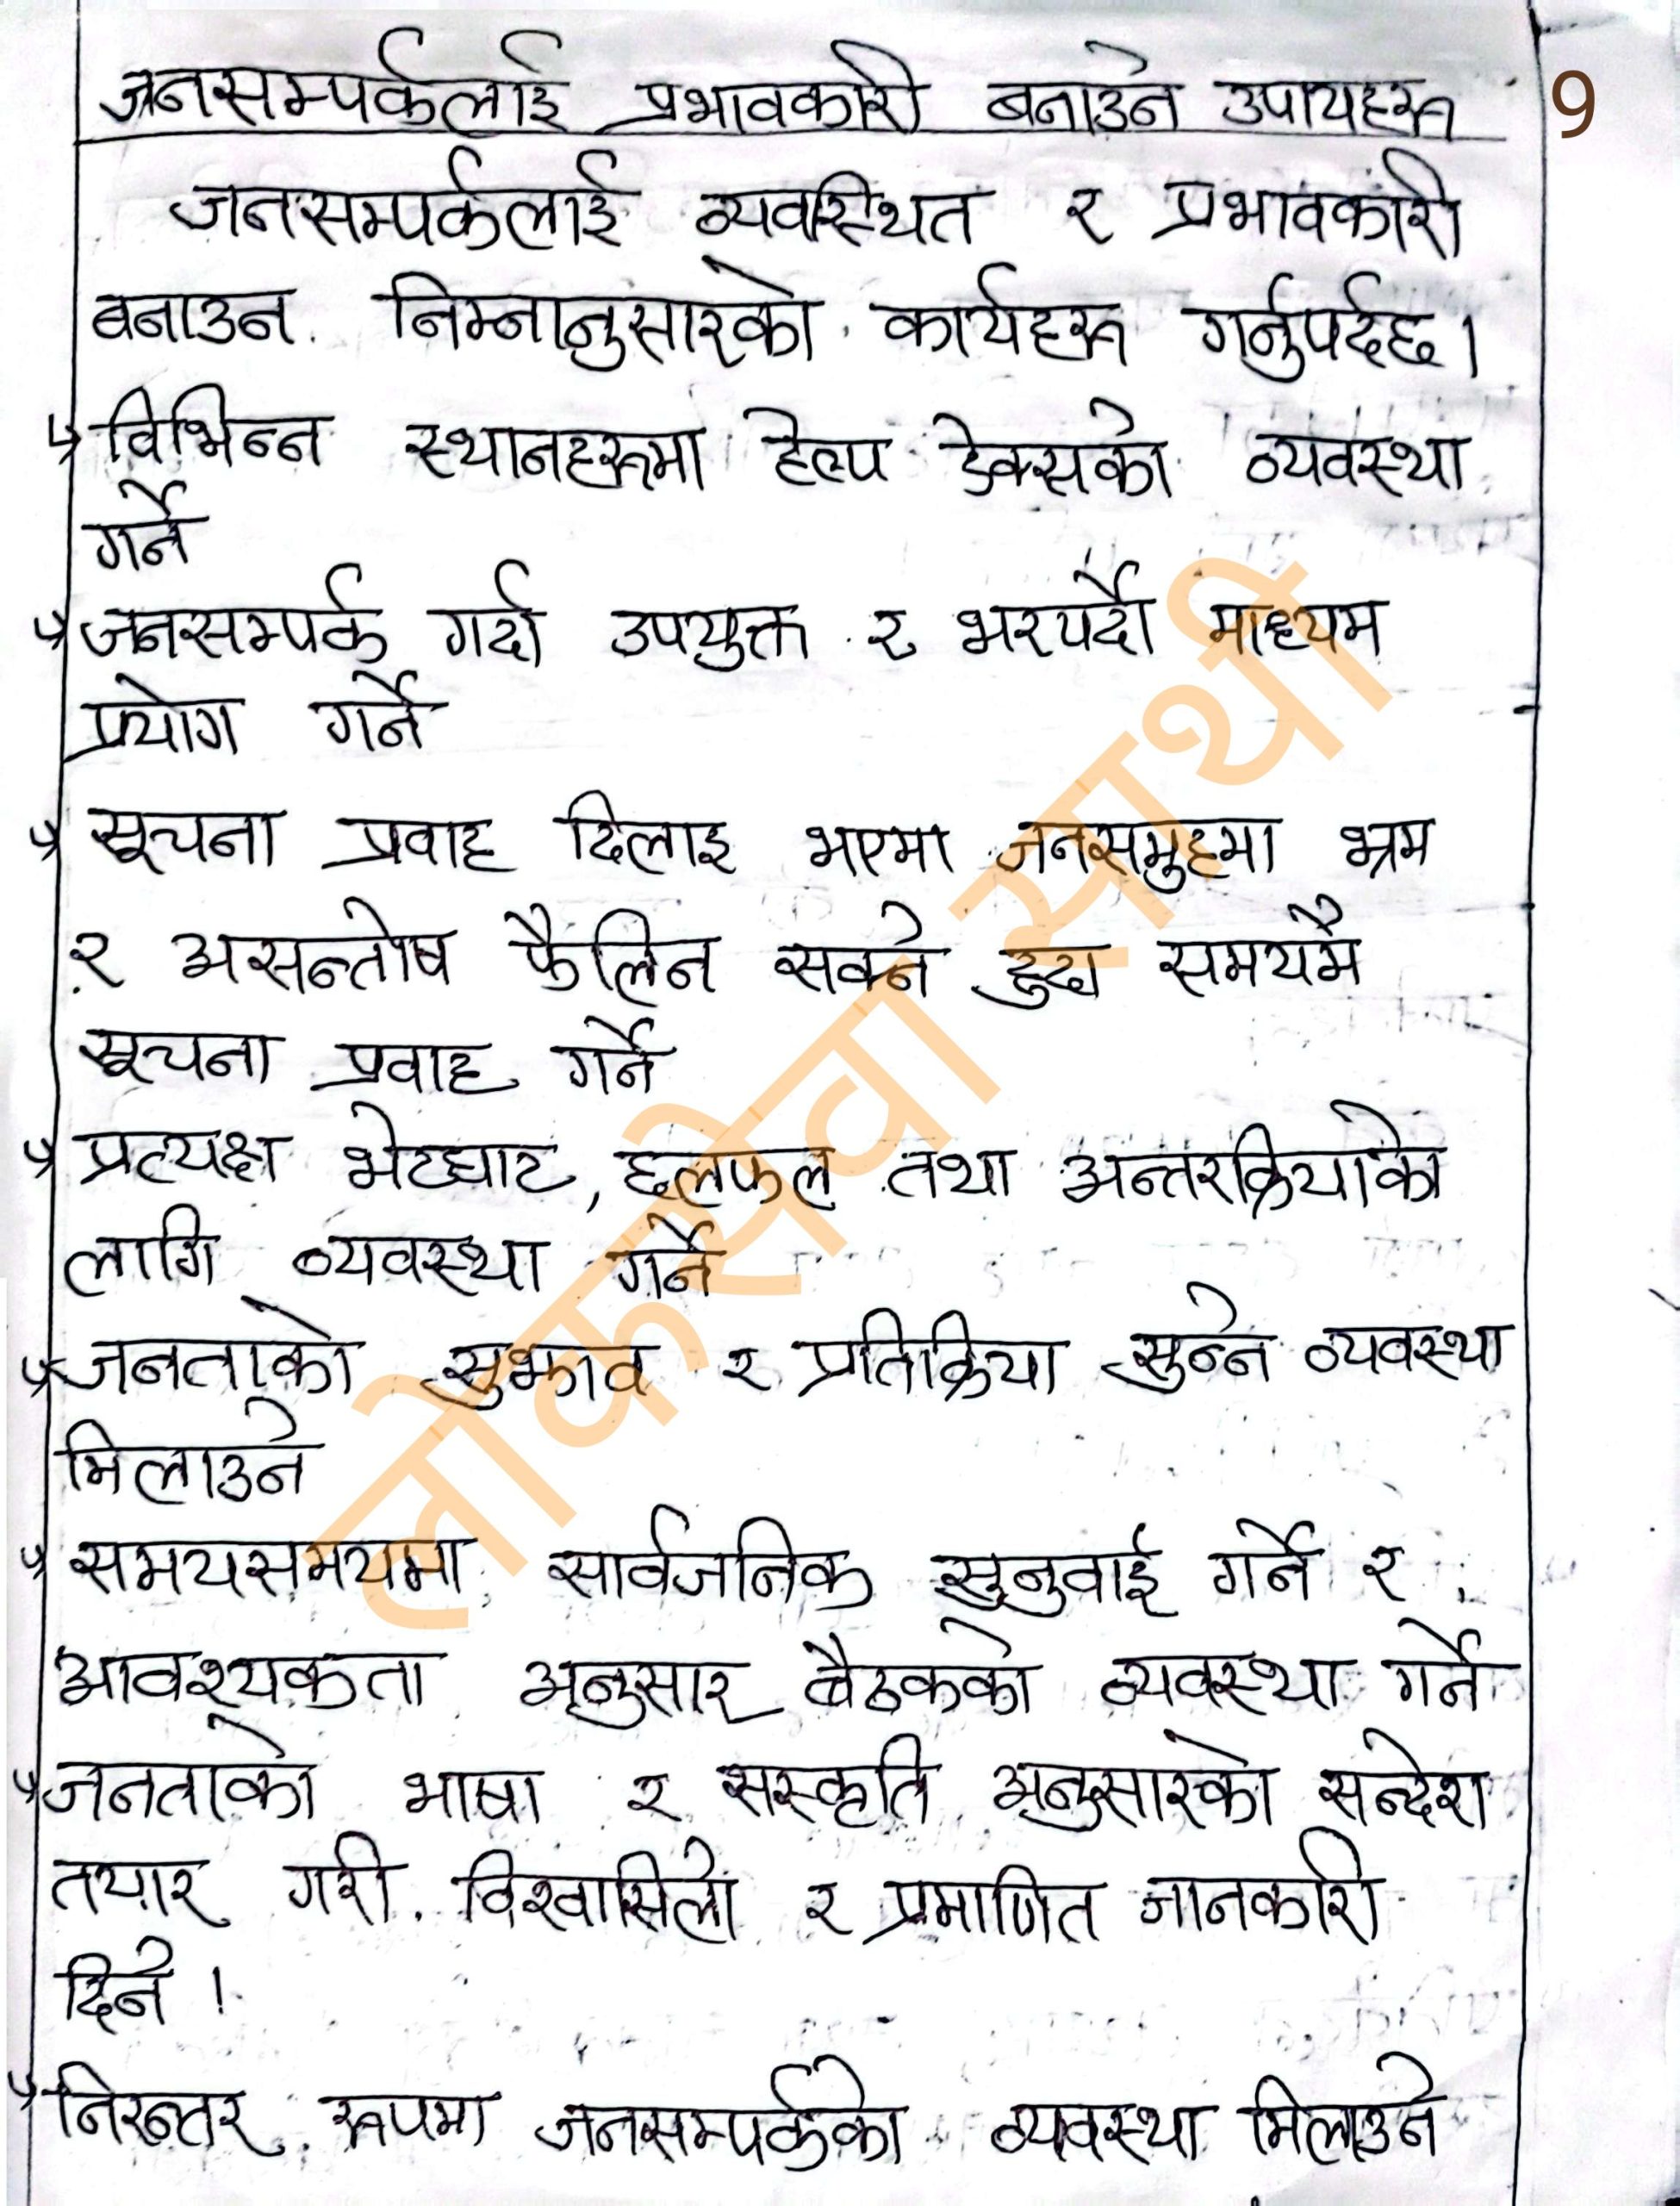 जनसम्पर्कलाई प्रभावकारी बनाउने उपायहरू
9
जनसम्पर्कलाई व्यवस्थित र प्रभावकारी
बनाउन निम्नानुसारको कार्यहरू गर्नुपर्दछ।
विभिन्न स्थानहरूमा हेल्प डेक्सको व्यवस्था
गर्ने
जनसम्पर्क गर्दा उपयुक्त र भरपर्दो माध्यम
प्रयोग गर्ने
सूचना प्रवाह ढिलाइ भएमा जनसमुहमा भ्रम
र असन्तोष फैलिन सक्ने हुदा समयमै
सूचना प्रवाह गर्ने
प्रत्यक्ष भेटघाट, छलफल तथा अन्तरक्रियाको
लागि व्यवस्था गर्ने
जनताको सुझाव र प्रतिक्रिया सुन्ने व्यवस्था
मिलाउने
समयसमयमा सार्वजनिक सुनुवाई गर्ने र
आवश्यकता अनुसार बैठकको व्यवस्था गर्ने
जनताको भाषा र संस्कृति अनुसारको सन्देश
तयार गरी विश्वासिलो र प्रमाणित जानकारी
दिने।
निरन्तर रूपमा जनसम्पर्कको व्यवस्था मिलाउने
लोकसेवा साथी